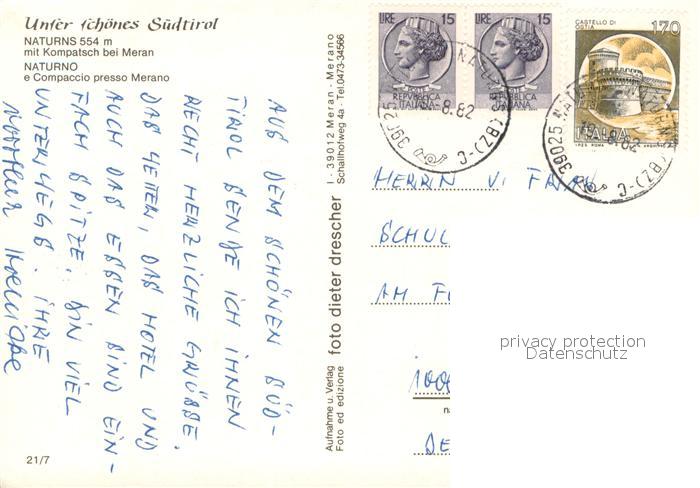 Unser schönes Südtirol
NATURNS 554 m
mit Kompatsch bei Meran
NATURNO
e Compaccio presso Merano
AUS DEM SCHÖNEN SÜD-
TIROL SENDE ICH IHNEN
RECHT HERZLICHE GRÜSSE.
DAS WETTER, DAS HOTEL UND
AUCH DAS ESSEN SIND EIN-
FACH SPITZE. BIN VIEL
UNTERWEGS. IHRE
21/7
Aufnahme u. Verlag
Foto ed edizione
foto dieter drescher
I - 39012 Meran - Merano
Schallhofweg 4a - Tel. 0473-34566
LIRE 15
REPUBBLICA
ITALIANA
LIRE 15
REPUBBLICA
ITALIANA
CASTELLO DI
OSTIA
170
ITALIA
39025
8.82
(BZ)-C
39025
8.82
(BZ)-C
HERRN V. FRANK
SCHUL
AM F
1000
DE
privacy protection
Datenschutz